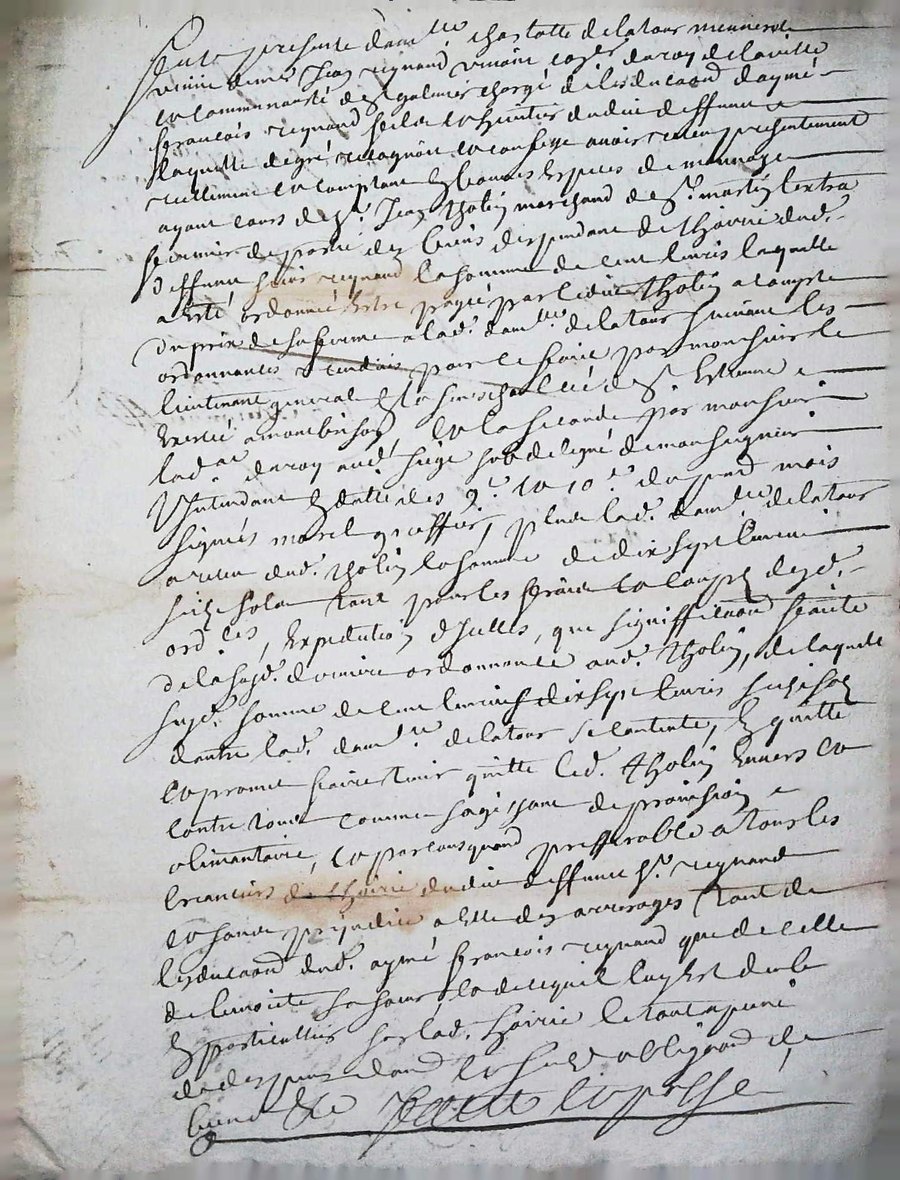 feut presente dam.lle charlotte delatour
Jean reynaud vivain
la Communauté de St galmier chargé de l'education daymé
francois reynaud fils et heritier dudit deffunt
laquelle de gré recognoit et confesse avoir receu presentement
reellement et comptant En bonnes Especes de monnoye
ayant cours de sr. Jean Tholin marchand de St. martin lextra
fermier de partie des biens dependant de lhoirie dud.
deffunt sieur reynaud la somme de cent livres laquelle
a Esté ordonné Estre payé par ledit Tholin a compte
du prix de sa ferme a lad. dam.lle delatour suivant les
ordonnances rendues par monsieur le
lieutenant general En la senechaussée de St. Estienne
a montbrison par monsieur
lad. du roy aud. siege subdelegué de monseigneur
Lintendant En datte des 9.e et 10.e du pnt mois
signés morel greffier, plus lad. dam.lle delatour
a receu dud. Tholin la somme de dix sept livres
seize sols tant pour les frais et
ord.ces, Expedition d'icelles, que signiffication faite
de la susd. derniere ordonnance aud. Tholin, de laquelle
susd. somme de cent dix sept livres seize sols
lad. dam.lle delatour se contente, En quitte
et promet faire tenir quitte led. Tholin Envers et
contre tous comme sagissant de provision
alimentaire, et par consequand prefferable a tous les
creanciers de lhoirie dudit deffunt sr. reynaud
et sans prejudice a Elle des arrerages tant de
leducation dud. aymé francois reynaud que de celle
de sa sœur
En particulier sur lad. hoirie le tout a peine
de despens et obligeand
biens &c fait et passé